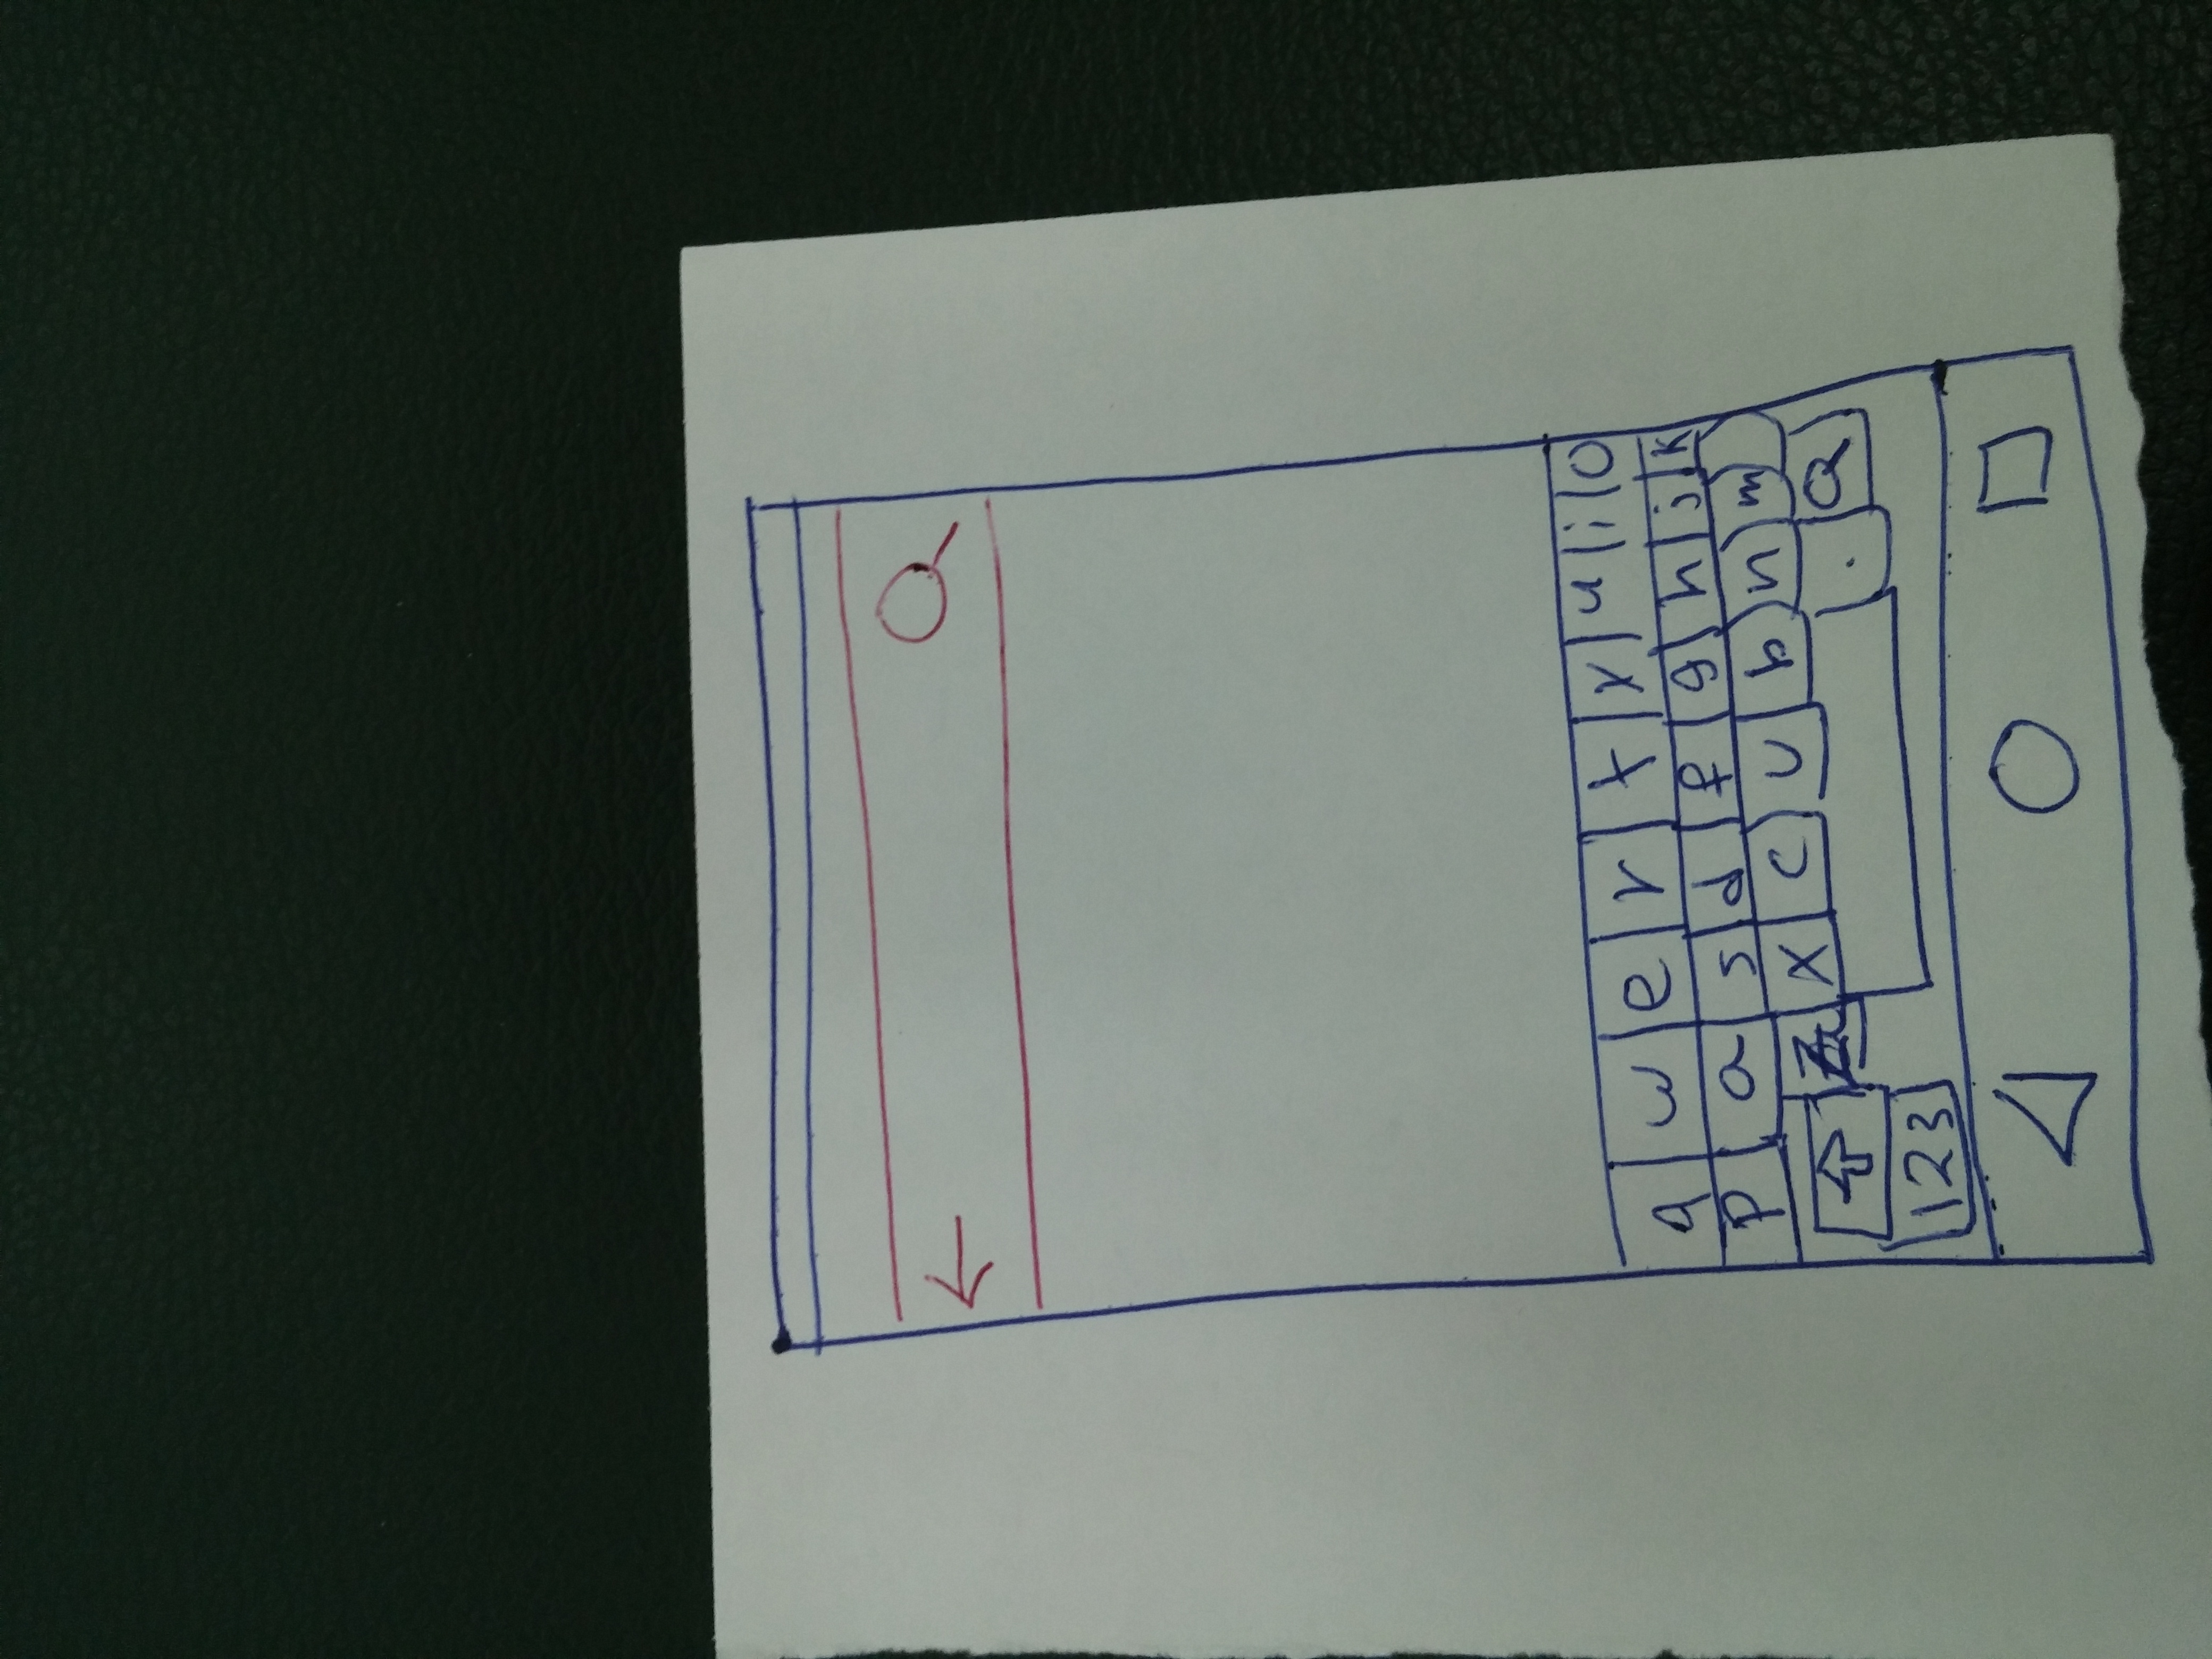 q w e r t y u i o
p a s d f g h j k
x c v b n m
. Q
123